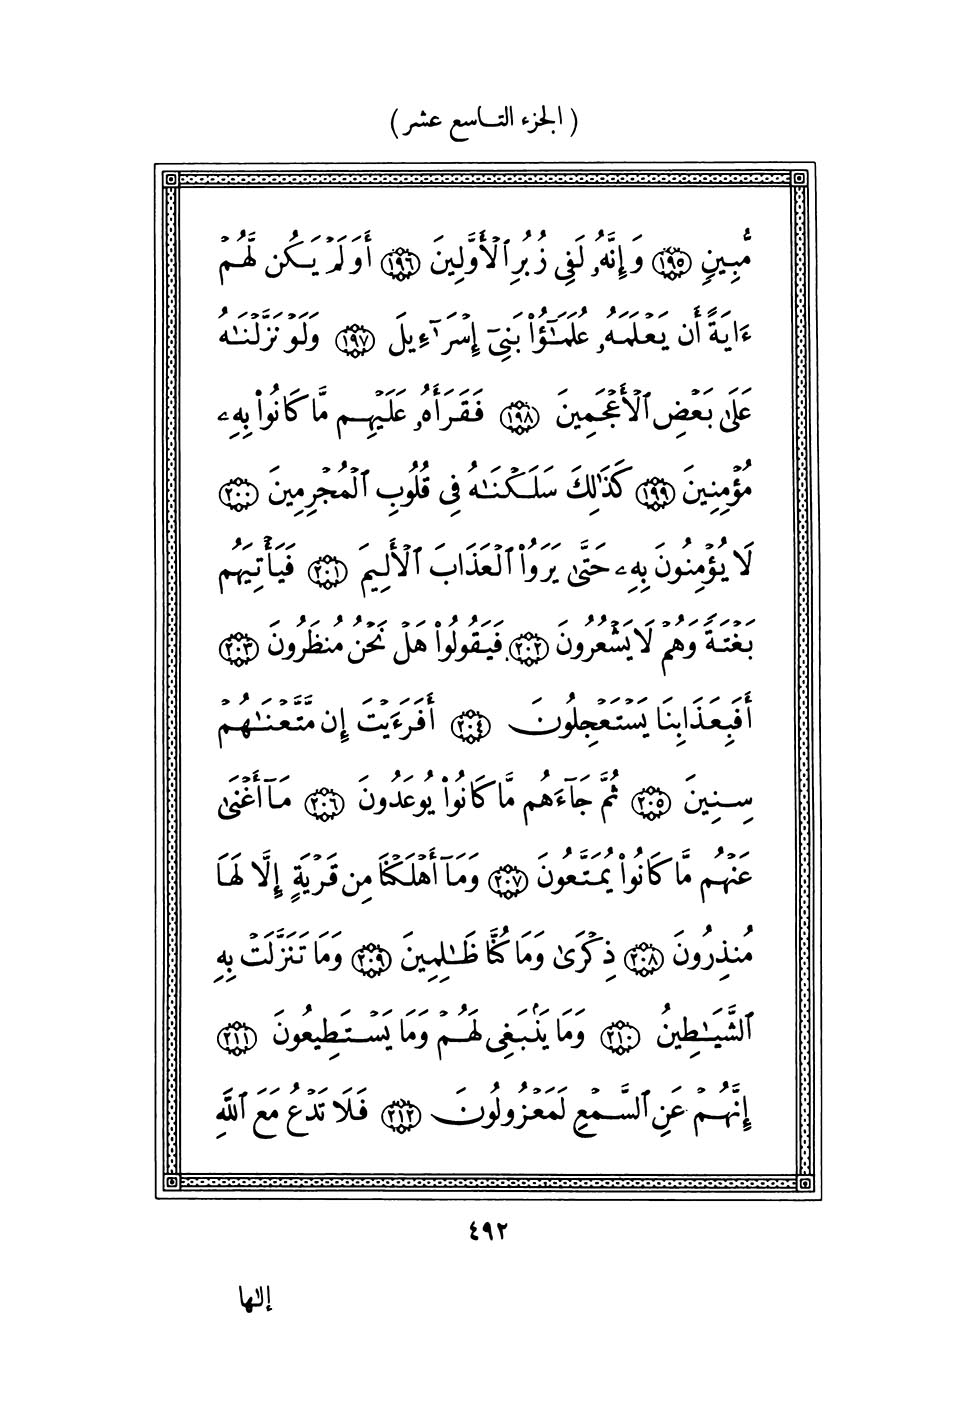 ( الجزء التاسع عشر )
مُّبِينٍ ١٩٥ وَإِنَّهُۥ لَفِى زُبُرِ ٱلْأَوَّلِينَ ١٩٦ أَوَلَمْ يَكُن لَّهُمْ
ءَايَةً أَن يَعْلَمَهُۥ عُلَمَـٰٓؤُا۟ بَنِىٓ إِسْرَٰٓءِيلَ ١٩٧ وَلَوْ نَزَّلْنَـٰهُ
عَلَىٰ بَعْضِ ٱلْأَعْجَمِينَ ١٩٨ فَقَرَأَهُۥ عَلَيْهِم مَّا كَانُوا۟ بِهِۦ
مُؤْمِنِينَ ١٩٩ كَذَٰلِكَ سَلَكْنَـٰهُ فِى قُلُوبِ ٱلْمُجْرِمِينَ ٢٠٠
لَا يُؤْمِنُونَ بِهِۦ حَتَّىٰ يَرَوُا۟ ٱلْعَذَابَ ٱلْأَلِيمَ ٢٠١ فَيَأْتِيَهُم
بَغْتَةً وَهُمْ لَا يَشْعُرُونَ ٢٠٢ فَيَقُولُوا۟ هَلْ نَحْنُ مُنظَرُونَ ٢٠٣
أَفَبِعَذَابِنَا يَسْتَعْجِلُونَ ٢٠٤ أَفَرَءَيْتَ إِن مَّتَّعْنَـٰهُمْ
سِنِينَ ٢٠٥ ثُمَّ جَآءَهُم مَّا كَانُوا۟ يُوعَدُونَ ٢٠٦ مَآ أَغْنَىٰ
عَنْهُم مَّا كَانُوا۟ يُمَتَّعُونَ ٢٠٧ وَمَآ أَهْلَكْنَا مِن قَرْيَةٍ إِلَّا لَهَا
مُنذِرُونَ ٢٠٨ ذِكْرَىٰ وَمَا كُنَّا ظَـٰلِمِينَ ٢٠٩ وَمَا تَنَزَّلَتْ بِهِ
ٱلشَّيَـٰطِينُ ٢١٠ وَمَا يَنۢبَغِى لَهُمْ وَمَا يَسْتَطِيعُونَ ٢١١
إِنَّهُمْ عَنِ ٱلسَّمْعِ لَمَعْزُولُونَ ٢١٢ فَلَا تَدْعُ مَعَ ٱللَّهِ
٤٩٢
إلٰها